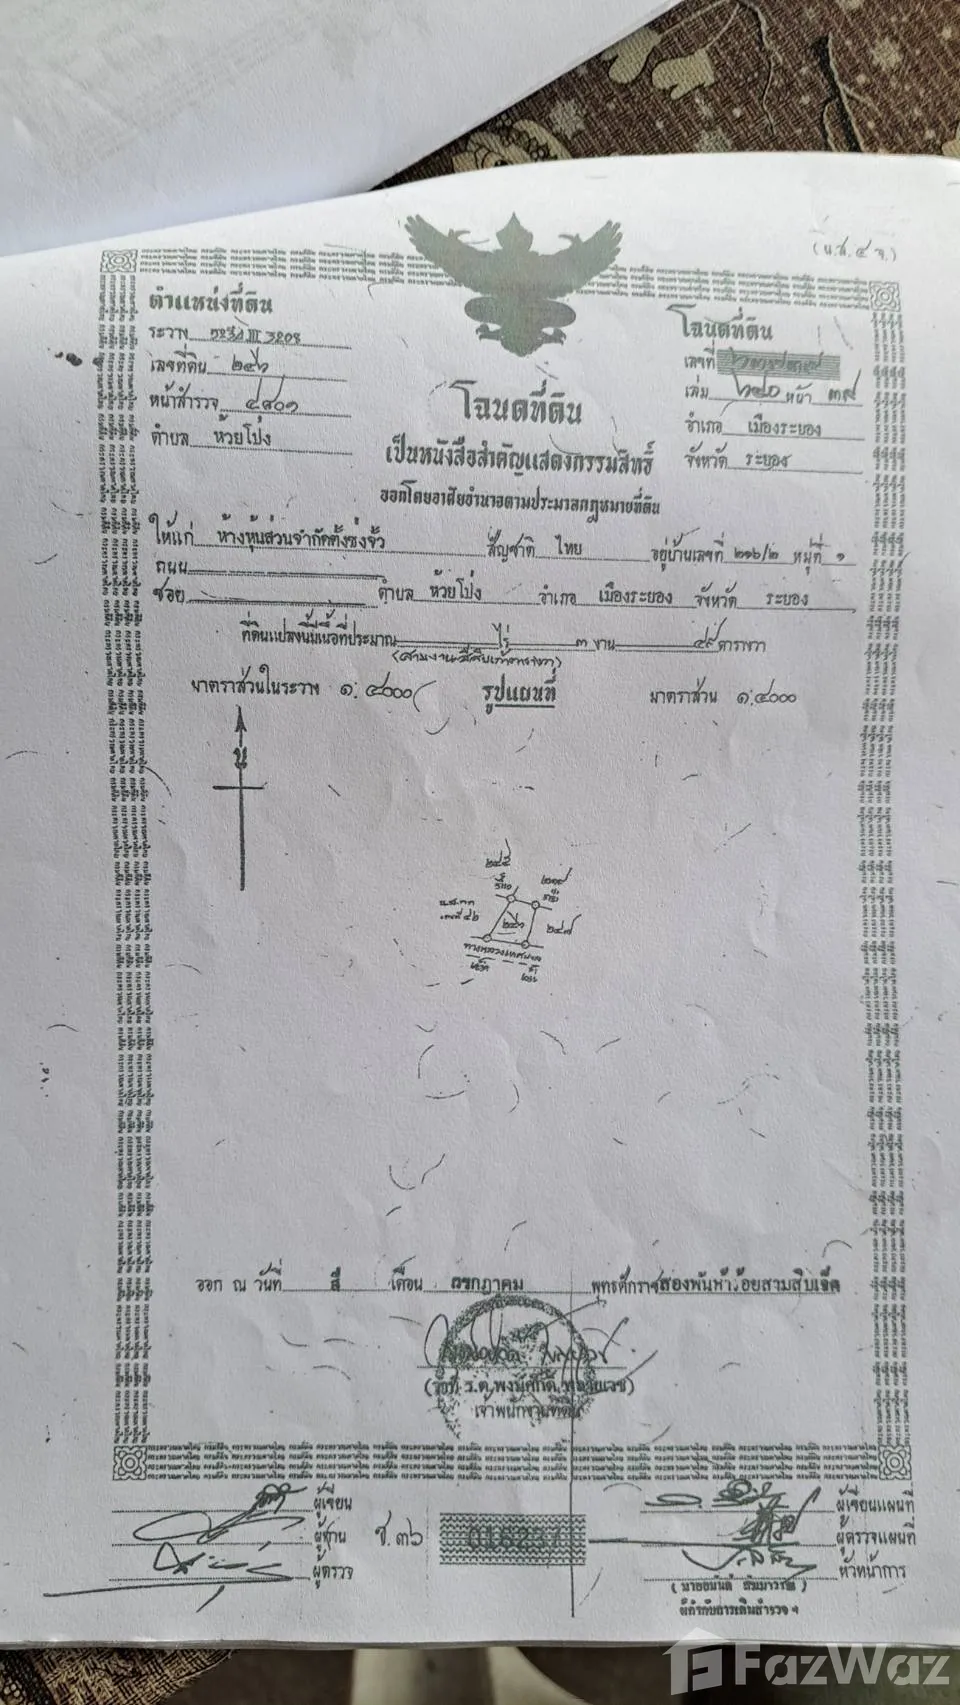 (น.ส.๔ จ.)
ตำแหน่งที่ดิน
ระวาง
เลขที่ดิน ๒๔๖
หน้าสำรวจ ๔๘๐๑
ตำบล ห้วยโป่ง
โฉนดที่ดิน
เลขที่
เล่ม หน้า ๓๙
อำเภอ เมืองระยอง
จังหวัด ระยอง
โฉนดที่ดิน
เป็นหนังสือสำคัญแสดงกรรมสิทธิ์
ออกโดยอาศัยอำนาจตามประมวลกฎหมายที่ดิน
ให้แก่ ห้างหุ้นส่วนจำกัดตั้งซ่งจั้ว สัญชาติ ไทย อยู่บ้านเลขที่ ๒๑๖/๒ หมู่ที่ ๑
ถนน
ซอย ตำบล ห้วยโป่ง อำเภอ เมืองระยอง จังหวัด ระยอง
ที่ดินแปลงนี้มีเนื้อที่ประมาณ ไร่ ๓ งาน ๔๙ ตารางวา
(สามงานสี่สิบเก้าตารางวา)
มาตราส่วนในระวาง ๑:๔๐๐๐ รูปแผนที่ มาตราส่วน ๑:๔๐๐๐
น
๒๔๕
๒๔๖
๒๔๗
ทางหลวงเทศบาล
ออก ณ วันที่ สี่ เดือน กรกฎาคม พุทธศักราช สองพันห้าร้อยสามสิบเจ็ด
เจ้าพนักงานที่ดิน
ผู้เขียน
ผู้ทาน
ผู้ตรวจ
ช.๓๖
ผู้เขียนแผนที่
ผู้ตรวจแผนที่
หัวหน้าการ
ผู้กำกับการเดินสำรวจฯ
FazWaz